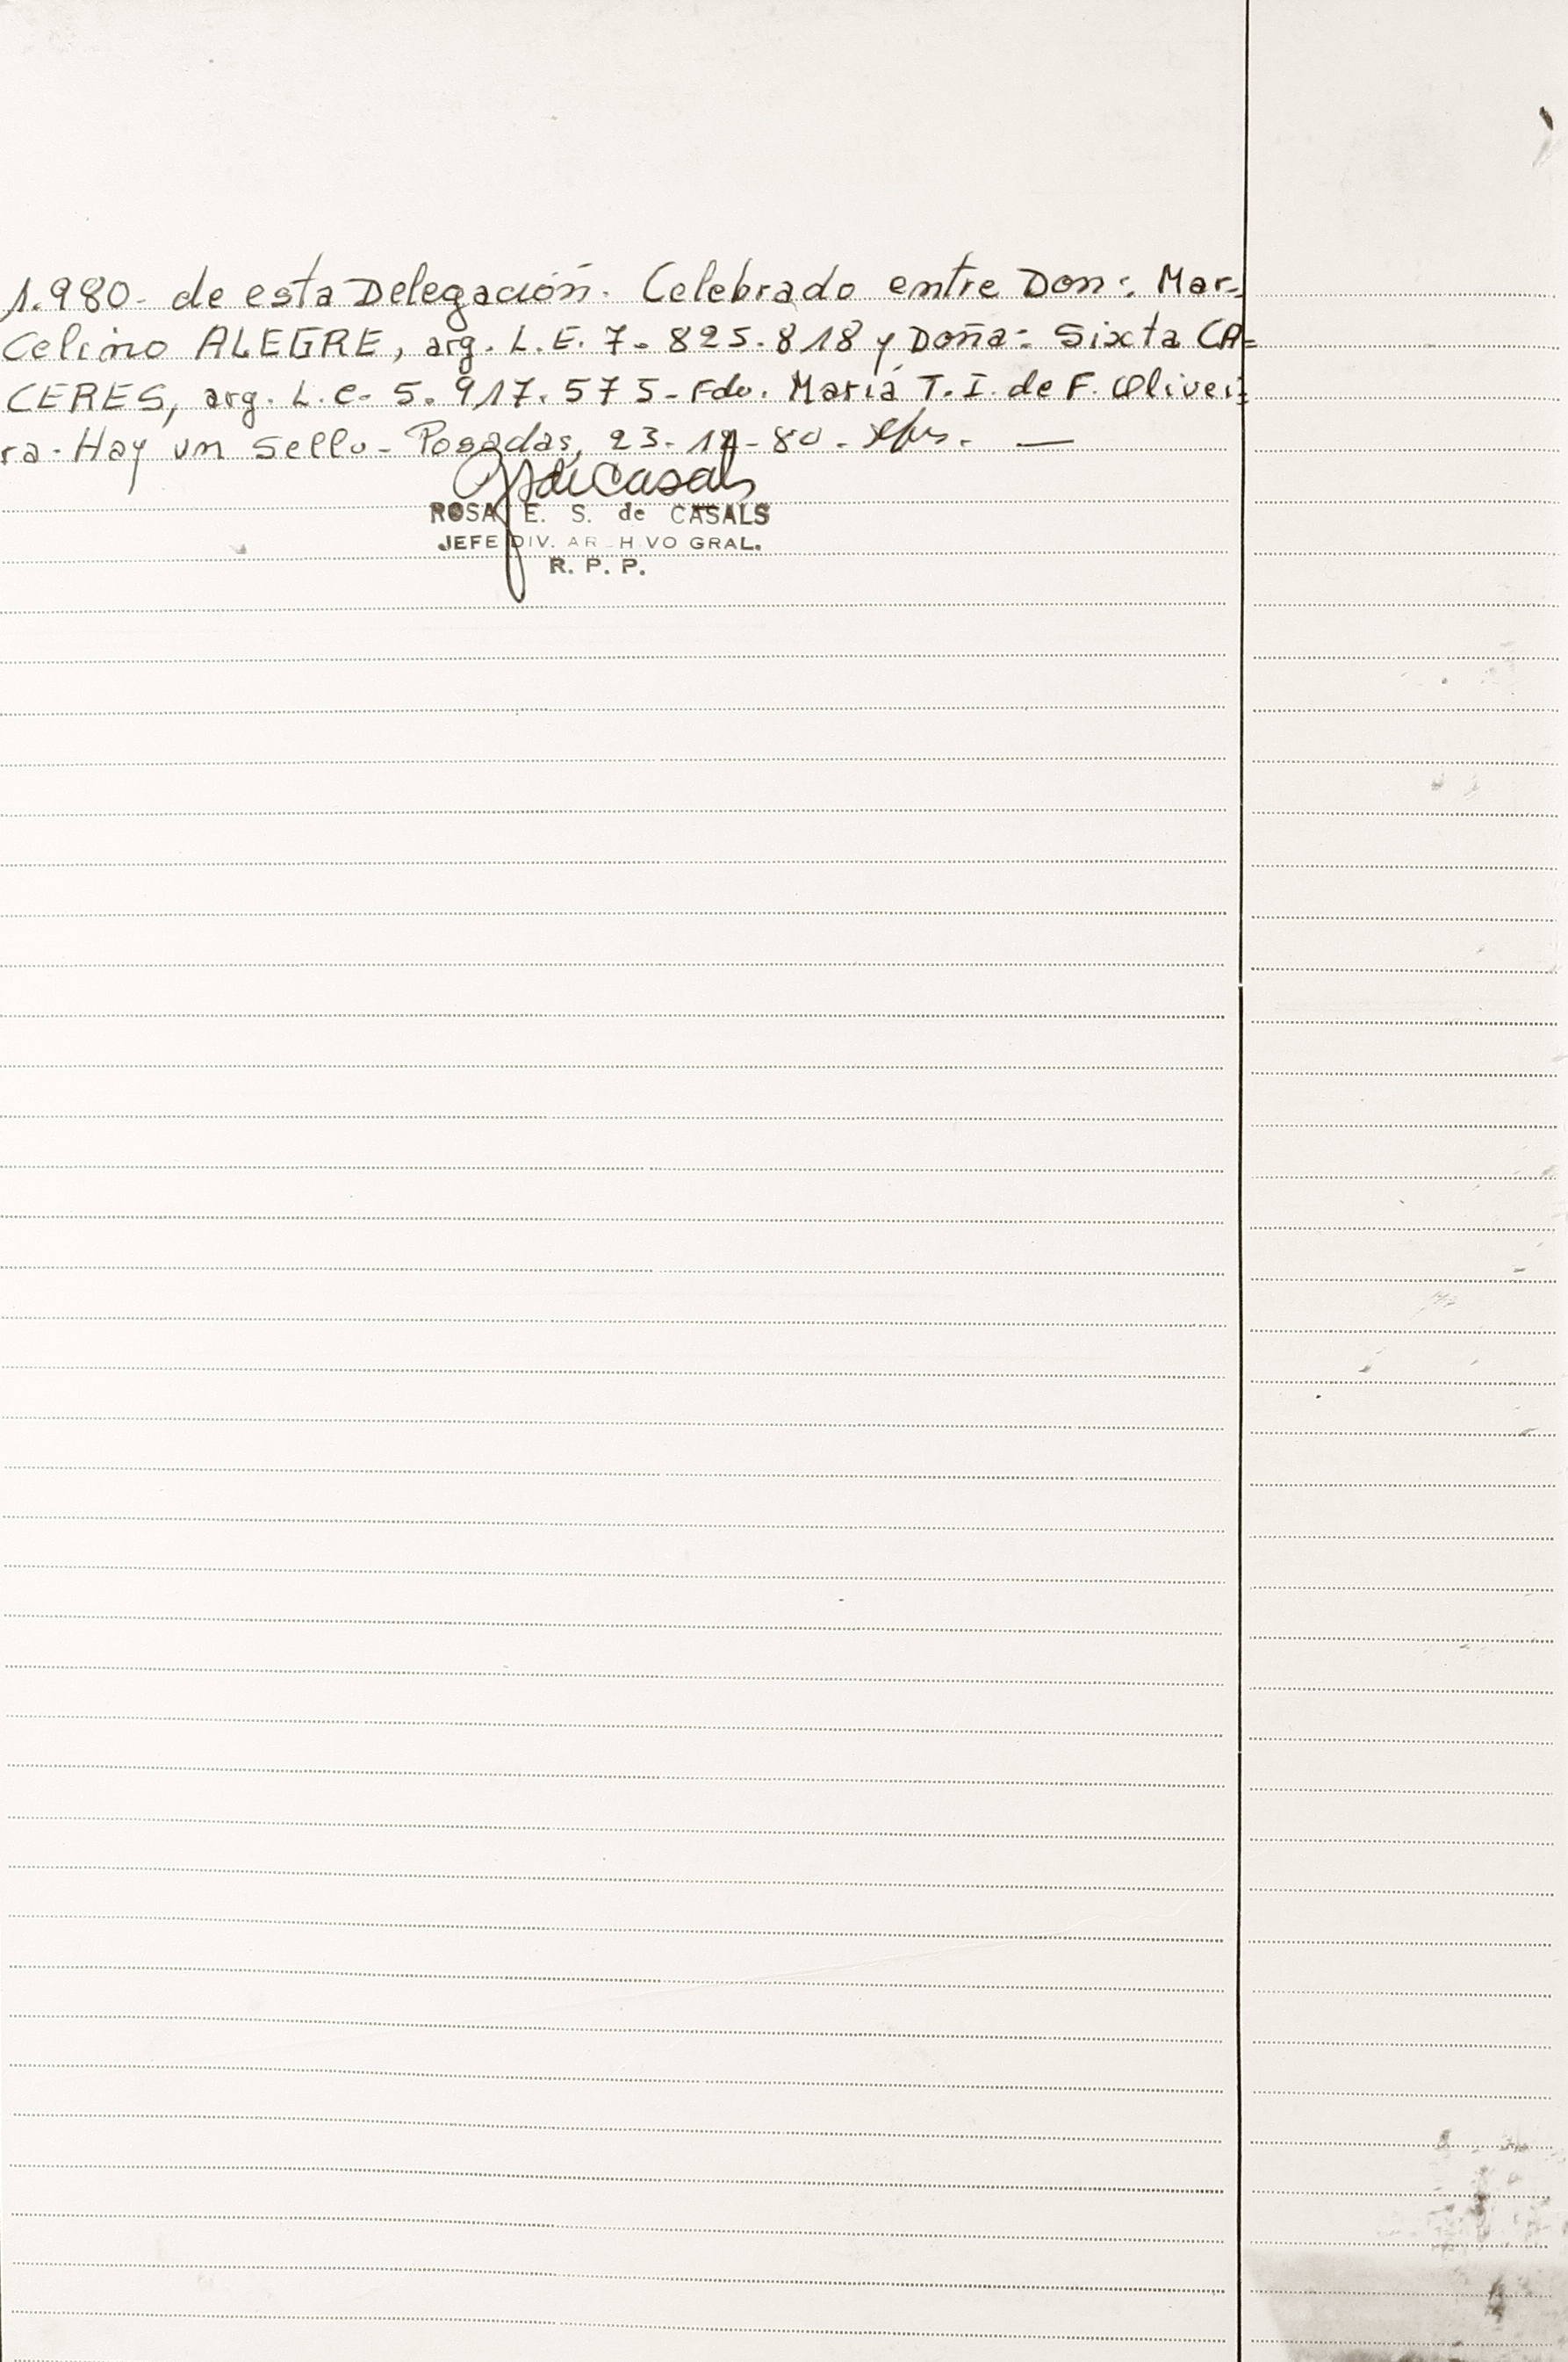 1.980- de esta Delegación. Celebrado entre Don: Mar-
Celino ALEGRE, arg. L.E. 7.825.818 y Doña: Sixta CA=
CERES, arg. L.C. 5.917.575- Fdo. María T.I. de F. Olivei=
ra- Hay un sello- Posadas, 23-12-80-
ROSA E. S. de CASALS
JEFE DIV. AR HIVO GRAL.
R. P. P.